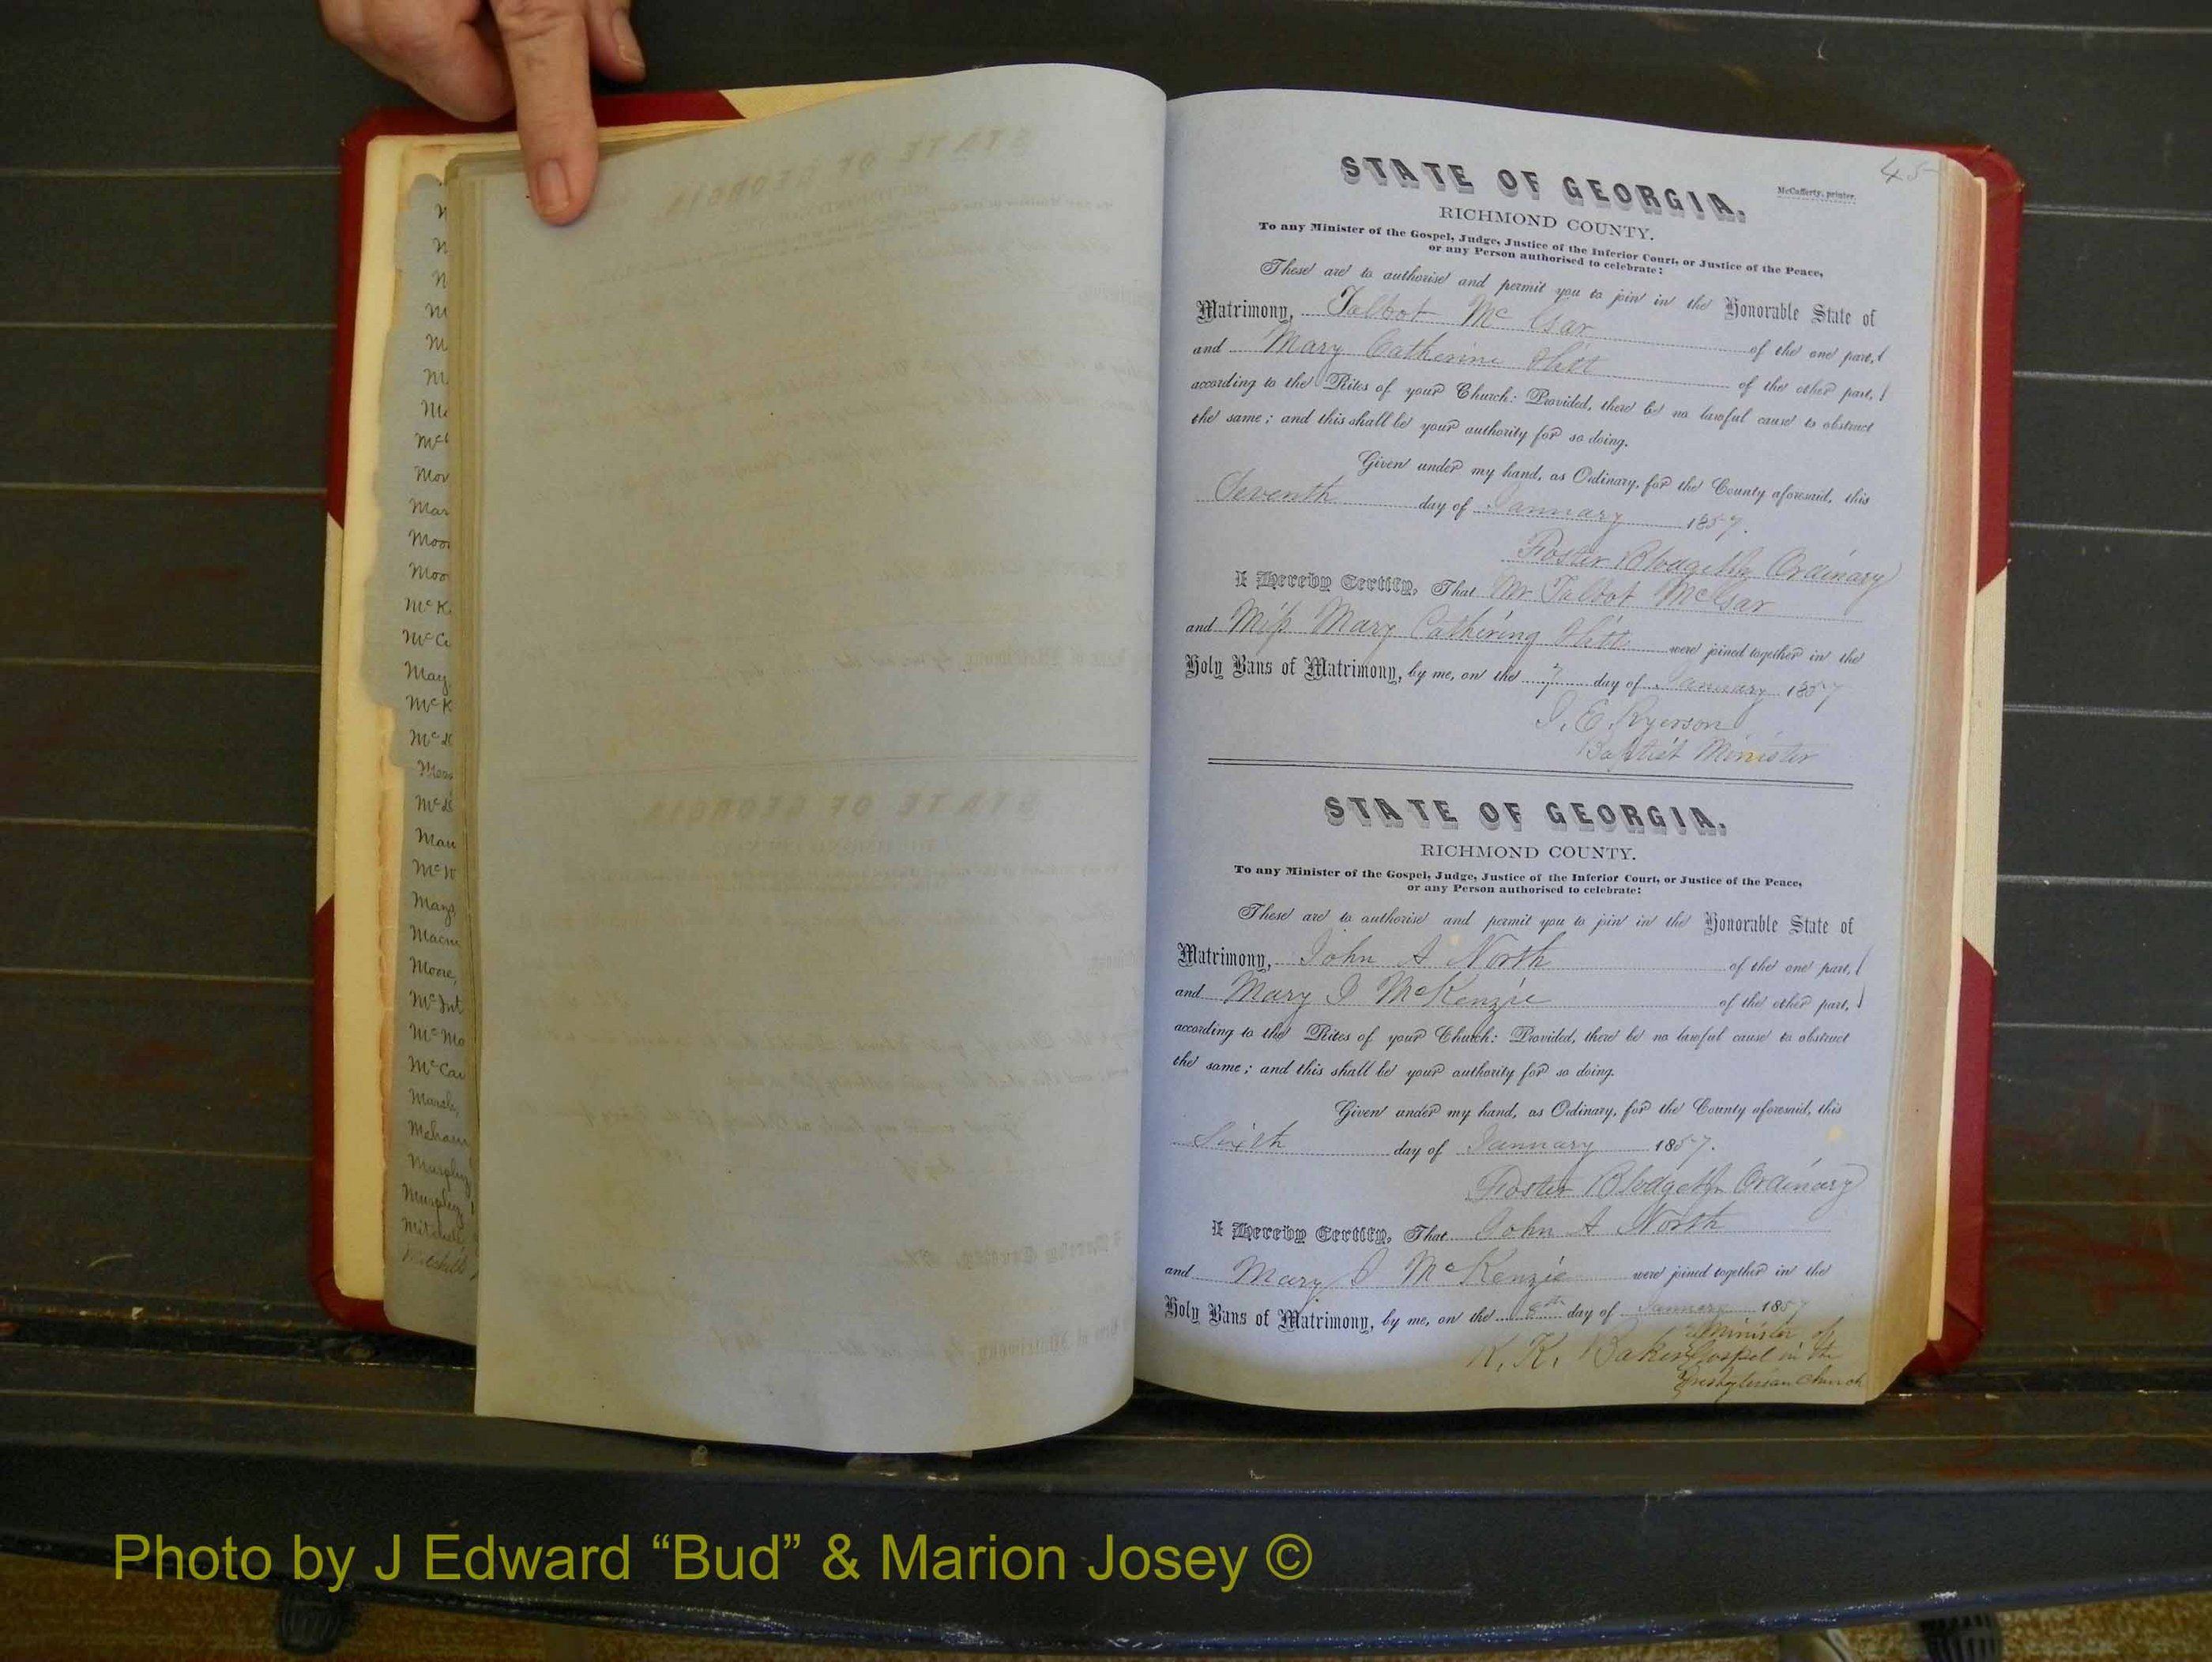 m
Mc
Mcl
Mor
Mar
Moo
Moo
McK
McC
May
McK
Man
McW
Mays
Macm
Moore,
McInt
McMo
McCar
Marsh,
Murphy
Murphy
Mitchell
Mitchell
45
McCafferty, printer.
STATE OF GEORGIA.
RICHMOND COUNTY.
To any Minister of the Gospel, Judge, Justice of the Inferior Court, or Justice of the Peace,
or any Person authorised to celebrate:
These are to authorise and permit you to join in the Honorable State of
Matrimony, Talbot Mc Gar of the one part,
and Mary Catherine Hitt of the other part,
according to the Rites of your Church: Provided, there be no lawful cause to obstruct
the same; and this shall be your authority for so doing.
Given under my hand, as Ordinary, for the County aforesaid, this
Seventh day of January 1857.
Foster Blodgett Jr Ordinary
I Hereby Certify, That Mr Talbot McGar
and Miss Mary Catherine Hitt were joined together in the
Holy Bans of Matrimony, by me, on the 7 day of January 1857
J. E. Ryerson
Baptist Minister
STATE OF GEORGIA.
RICHMOND COUNTY.
To any Minister of the Gospel, Judge, Justice of the Inferior Court, or Justice of the Peace,
or any Person authorised to celebrate:
These are to authorise and permit you to join in the Honorable State of
Matrimony, John A North of the one part,
and Mary J McKenzie of the other part,
according to the Rites of your Church: Provided, there be no lawful cause to obstruct
the same; and this shall be your authority for so doing.
Given under my hand, as Ordinary, for the County aforesaid, this
Sixth day of January 1857.
Foster Blodgett Jr Ordinary
I Hereby Certify, That John A North
and Mary J McKenzie were joined together in the
Holy Bans of Matrimony, by me, on the 8th day of January 1857
Minister of
K. K. Baker Gospel in the
Presbyterian Church
Photo by J Edward “Bud” & Marion Josey ©